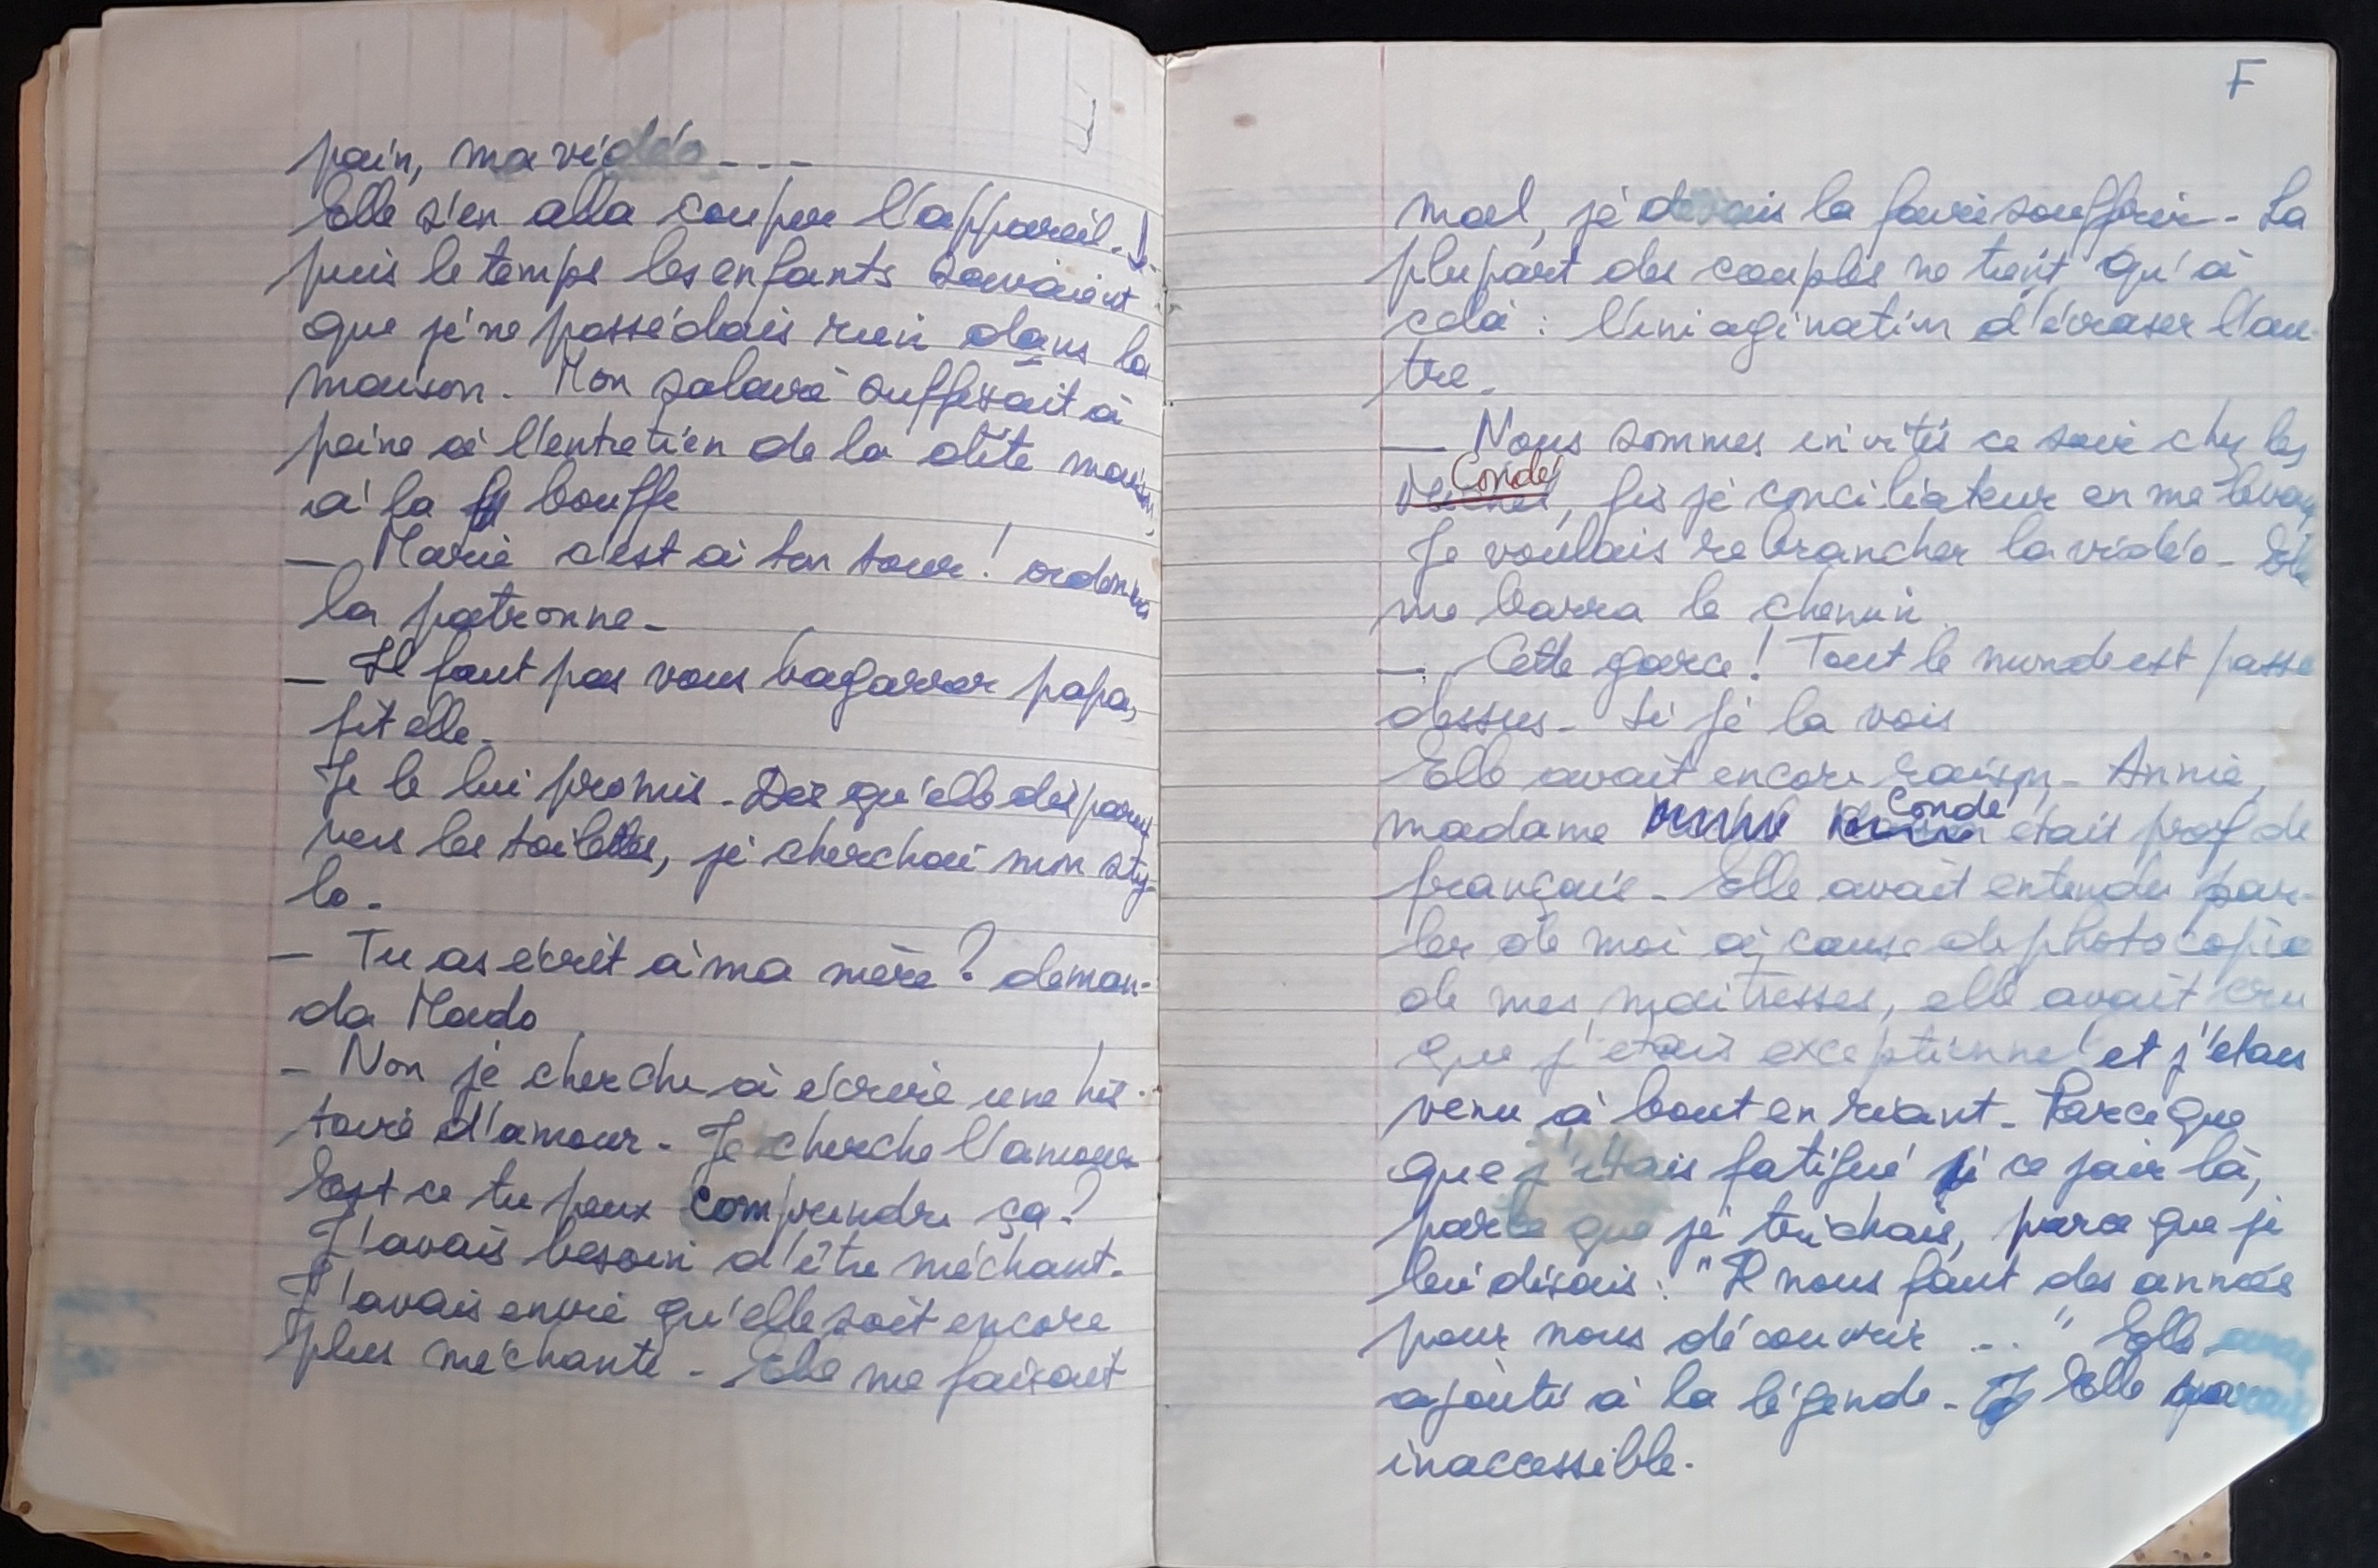 pain, ma vidéo - - -
Elle s'en alla couper l'appareil. De-
puis le temps les enfants savaient
que je ne possédais rien dans la
maison. Mon salaire suffisait à
peine à l'entretien de la dite maison,
à la bouffe
— Marie c'est à ton tour ! ordonna
la patronne.
— Il faut pas vous bagarrer papa,
fit elle.
Je le lui promis. Dès qu'elle disparut
vers les toilettes, je cherchai mon sty-
lo.
— Tu as écrit à ma mère ? deman-
da Mado
— Non je cherche à écrire une his-
toire d'amour. Je cherche l'amour
Est ce tu peux comprendre ça ?
J'avais besoin d'être méchant.
J'avais envie qu'elle soit encore
plus méchante. Elle me faisait
F
mal, je devais la faire souffrir. La
plupart des couples ne tient qu'à
cela : l'imagination d'écraser l'au-
tre.
— Nous sommes invités ce soir chez les
Condé, fis je conciliateur en me levant
Je voulais rebrancher la vidéo. Elle
me barra le chemin.
— Cette garce ! Tout le monde est passé
dessus. Si je la vois
Elle avait encore raison. Annie,
madame Condé était prof de
français. Elle avait entendu par-
ler de moi à cause de photocopie
de mes maîtresses, elle avait cru
que j'étais exceptionnel et j'étais
venu à bout en riant. Parce que
que j'étais fatigué ce soir là,
parce que je trichais, parce que je
lui disais : "Il nous faut des années
pour nous découvrir ..." Elle avait
ajouté à la légende. Elle
inaccessible.